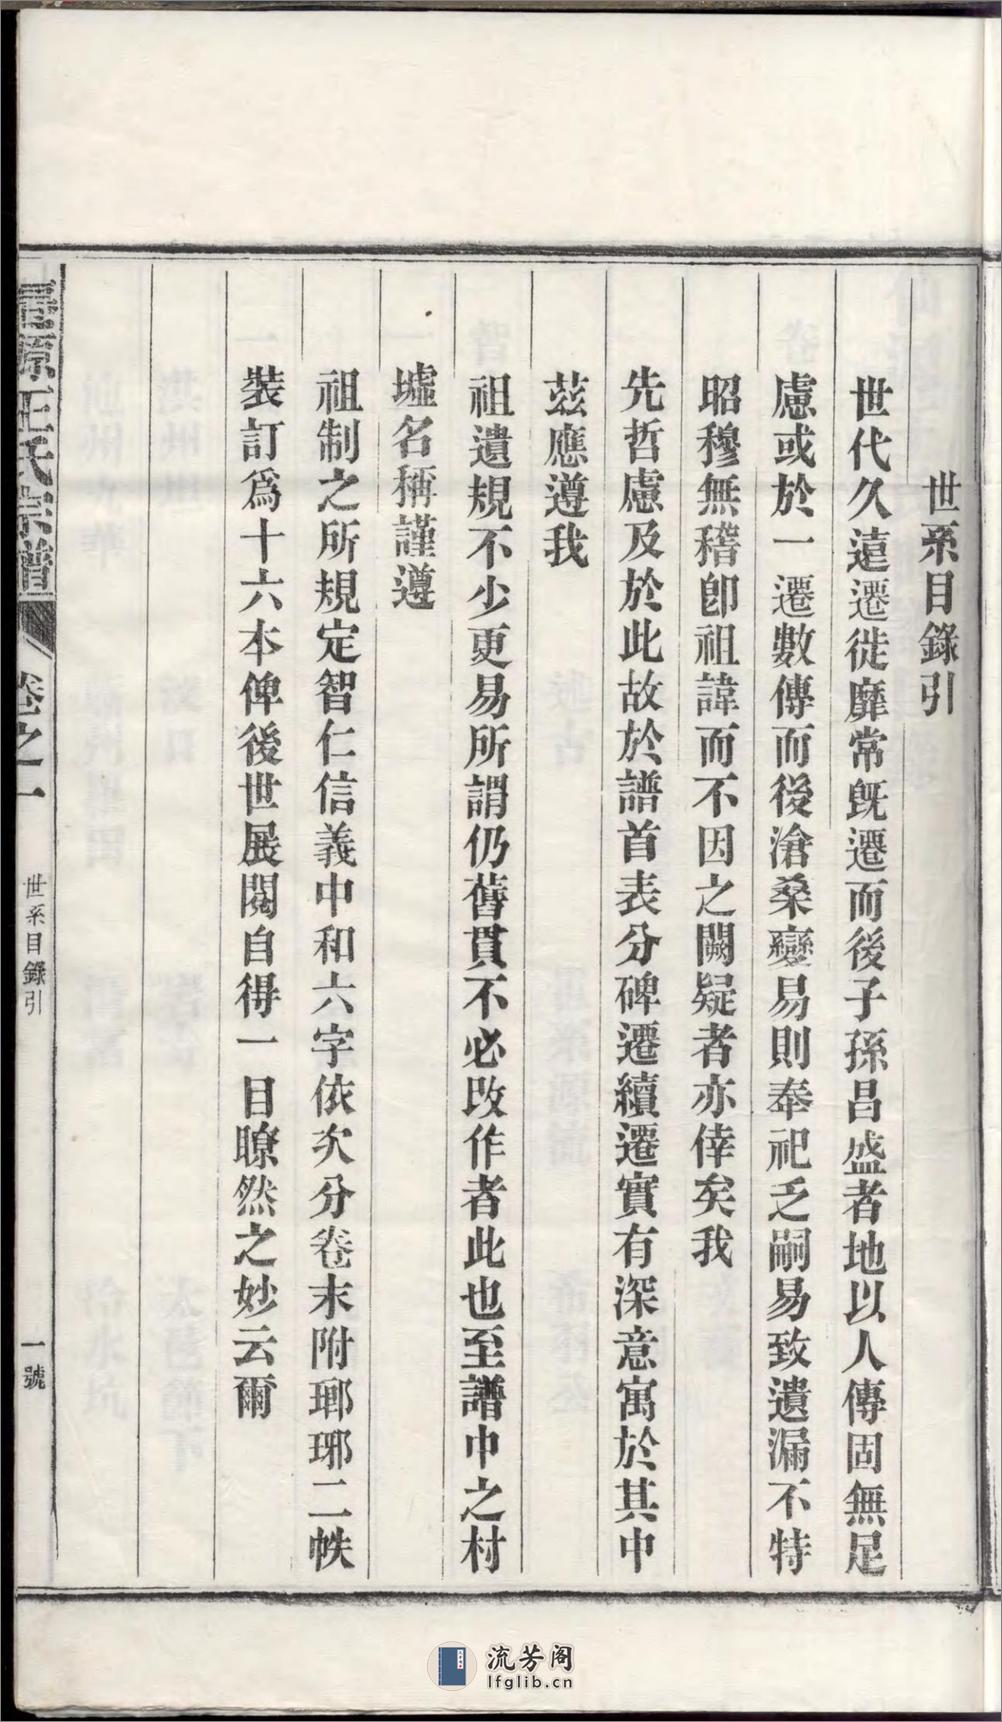 世系目錄引
世代久遠遷徙靡常既遷而後子孫昌盛者地以人傳固無足
慮或於一遷數傳而後滄桑變易則奉祀乏嗣易致遺漏不特
昭穆無稽卽祖諱而不因之闕疑者亦倖矣我
先哲慮及於此故於譜首表分碑遷續遷實有深意寓於其中
茲應遵我
祖遺規不少更易所謂仍舊貫不必改作者此也至譜中之村
墟名稱謹遵
祖制之所規定智仁信義中和六字依次分卷末附瑯琊二帙
裝訂爲十六本俾後世展閱自得一目瞭然之妙云爾
源王氏宗譜
卷之一
世系目錄引
一號
流芳阁
lfglib.cn